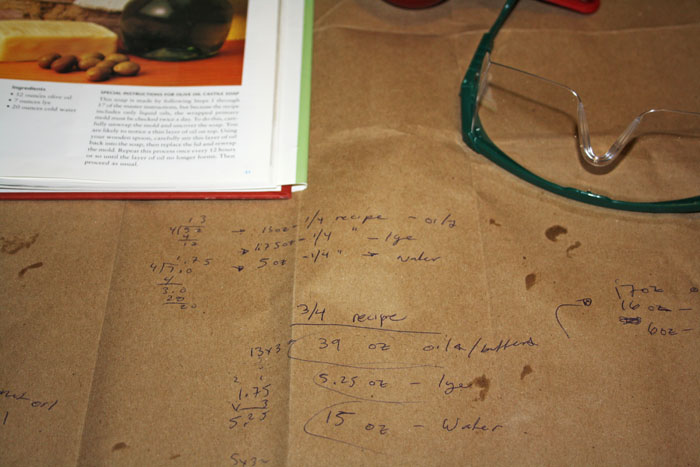 Ingredients
• 52 ounces olive oil
• 7 ounces lye
• 20 ounces cold water
SPECIAL INSTRUCTIONS FOR OLIVE OIL CASTILE SOAP
This soap is made by following Steps 1 through
17 of the master instructions, but because the recipe
includes only liquid oils, the wrapped primary
mold must be checked twice a day. To do this, care-
fully unwrap the mold and uncover the soap. You
are likely to notice a thin layer of oil on top. Using
your wooden spoon, carefully stir this layer of oil
back into the soap, then replace the lid and rewrap
the mold. Repeat this process once every 12 hours
or so until the layer of oil no longer forms. Then
proceed as usual.
13
4 52 → 13oz - 1/4 recipe - oils
4
12 → 1.75oz - 1/4 " - lye
1.75
4 7.0 → 5 oz - 1/4 " → water
4
3.0
28
20
17oz
16 oz -
6oz -
3/4 recipe
13x3 39 oz oils/butters
5.25 oz - lye
2 1
1.75
x 3
5.25
15 oz - Water
oil